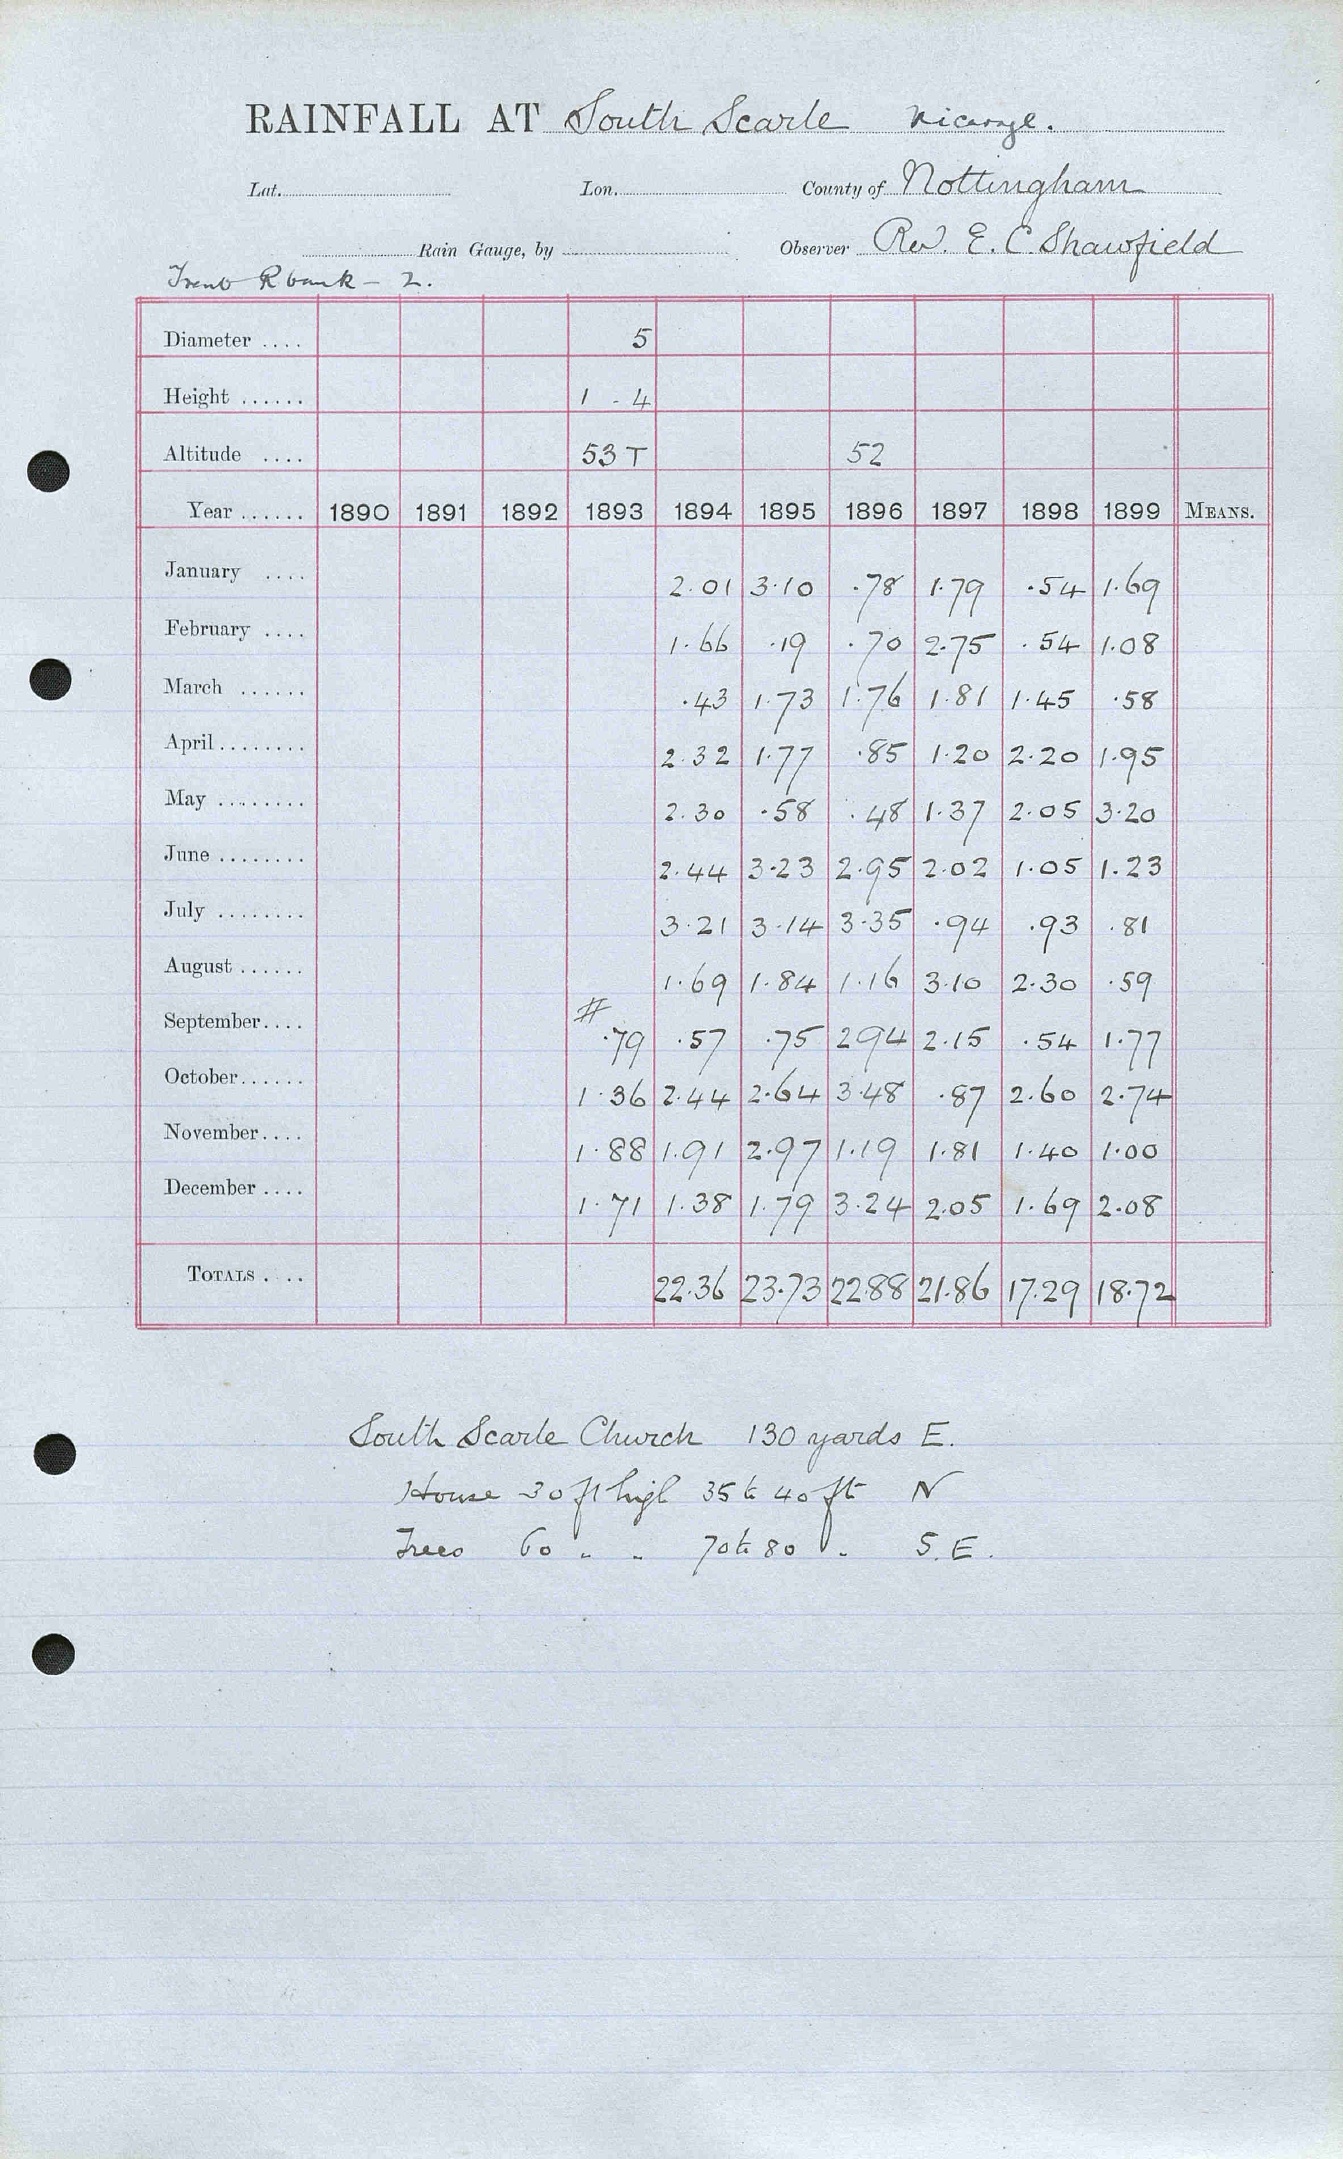 RAINFALL AT South Scarle Vicarage.
Lat. Lon. County of Nottingham
Rain Gauge, by Observer Rev. E. C. Shawfield
Trent R bank - 2.
Diameter .... 5
Height ...... 1 - 4
Altitude .... 53 T 52
Year ...... 1890 1891 1892 1893 1894 1895 1896 1897 1898 1899 MEANS.
January .... 2.01 3.10 .78 1.79 .54 1.69
February .... 1.66 .19 .70 2.75 .54 1.08
March ...... .43 1.73 1.76 1.81 1.45 .58
April ........ 2.32 1.77 .85 1.20 2.20 1.95
May ........ 2.30 .58 .48 1.37 2.05 3.20
June ........ 2.44 3.23 2.95 2.02 1.05 1.23
July ........ 3.21 3.14 3.35 .94 .93 .81
August ...... 1.69 1.84 1.16 3.10 2.30 .59
September.... # .79 .57 .75 2 94 2.15 .54 1.77
October...... 1.36 2.44 2.64 3.48 .87 2.60 2.74
November.... 1.88 1.91 2.97 1.19 1.81 1.40 1.00
December .... 1.71 1.38 1.79 3.24 2.05 1.69 2.08
TOTALS .... 22.36 23.73 22.88 21.86 17.29 18.72
South Scarle Church 130 yards E.
House 30 ft high 35 to 40 ft N
Trees 60 " " 70 to 80 " S.E.